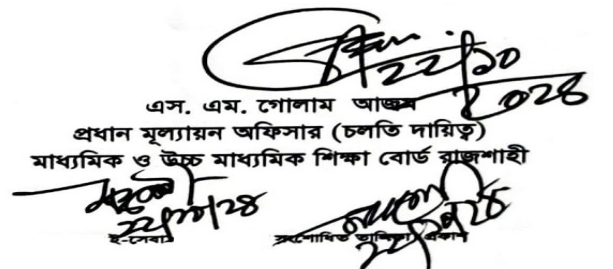 ২২/১০
২০২৪
এস. এম. গোলাম আজম
প্রধান মূল্যায়ন অফিসার (চলতি দায়িত্ব)
মাধ্যমিক ও উচ্চ মাধ্যমিক শিক্ষা বোর্ড রাজশাহী
ই-সেবা সংশোধিত তালিকা প্রকাশ